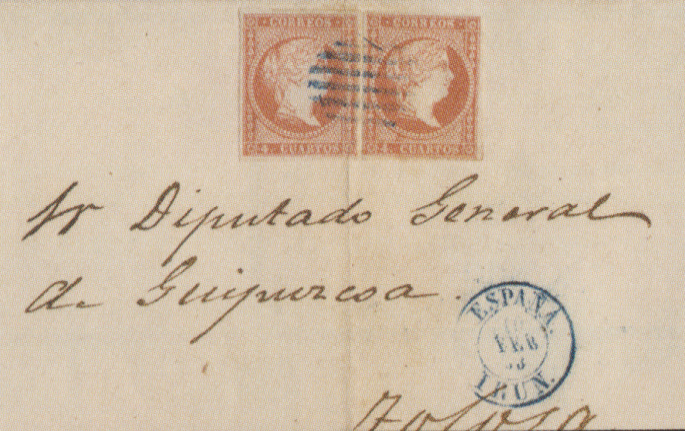 CORREOS CORREOS
4. CUARTOS 4. CUARTOS
Sr Diputado General
de Guipuzcoa.
ESPAÑA.
FEB
IRUN.
Tolosa